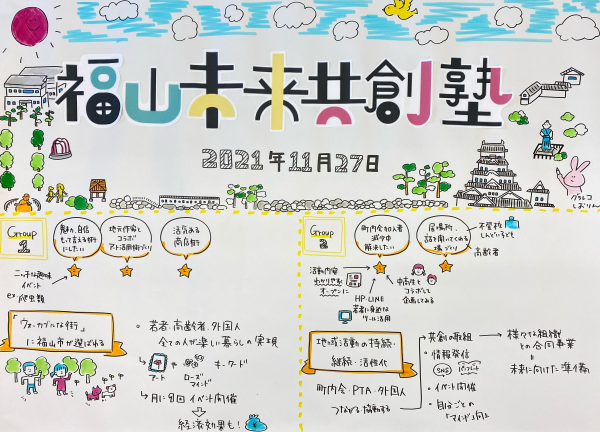 福山未来共創塾
2021年11月27日
グラレコ
しおりん
Group
1
魅力、自信
もって言える街
にしたい
地元作家と
コラボ
アート活用街づくり
活気ある
商店街
ニッチな趣味
イベント
ex. 爬虫類
「ウォーカブルな街」
に福山市が選ばれる
・若者・高齢者・外国人
全ての人が楽しい暮らしの実現
アート
ローズ
マインド
キーワード
月に1回イベント開催
経済効果も!
Group
2
町内会加入者
減少中
解決したい
居場所、
話を聞いてくれる
場づくり
不登校
しんどい子ども
高齢者
活動内容
わかりやすく
オープンに
HP・LINE
若者に身近な
ツール活用
中高生と
コラボして
企画してみる
地域活動の持続・
継続・活性化
町内会・PTA・外国人
つながる・協働する
・共創の取組
・情報発信
SNS
・イベント開催
・自分ごとの
「マインド」向上
様々な組織
との合同事業
=
未来に向けた準備